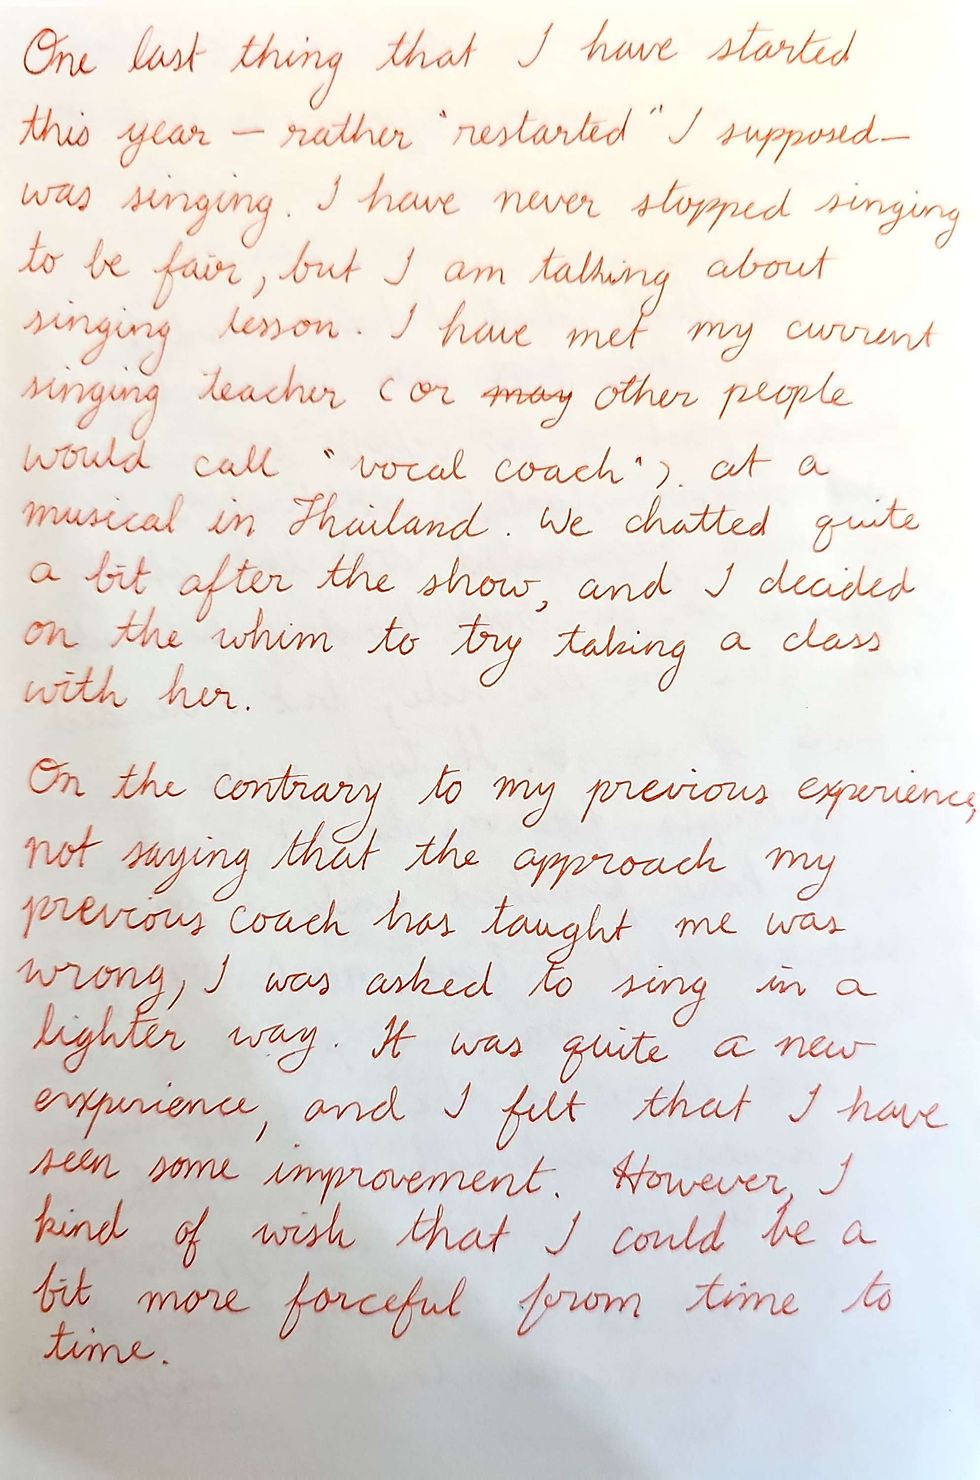 One last thing that I have started
this year — rather "restarted" I supposed —
was singing. I have never stopped singing
to be fair, but I am talking about
singing lesson. I have met my current
singing teacher (or may other people
would call "vocal coach"). at a
musical in Thailand. We chatted quite
a bit after the show, and I decided
on the whim to try taking a class
with her.
On the contrary to my previous experience,
not saying that the approach my
previous coach has taught me was
wrong, I was asked to sing in a
lighter way. It was quite a new
experience, and I felt that I have
seen some improvement. However, I
kind of wish that I could be a
bit more forceful from time to
time.